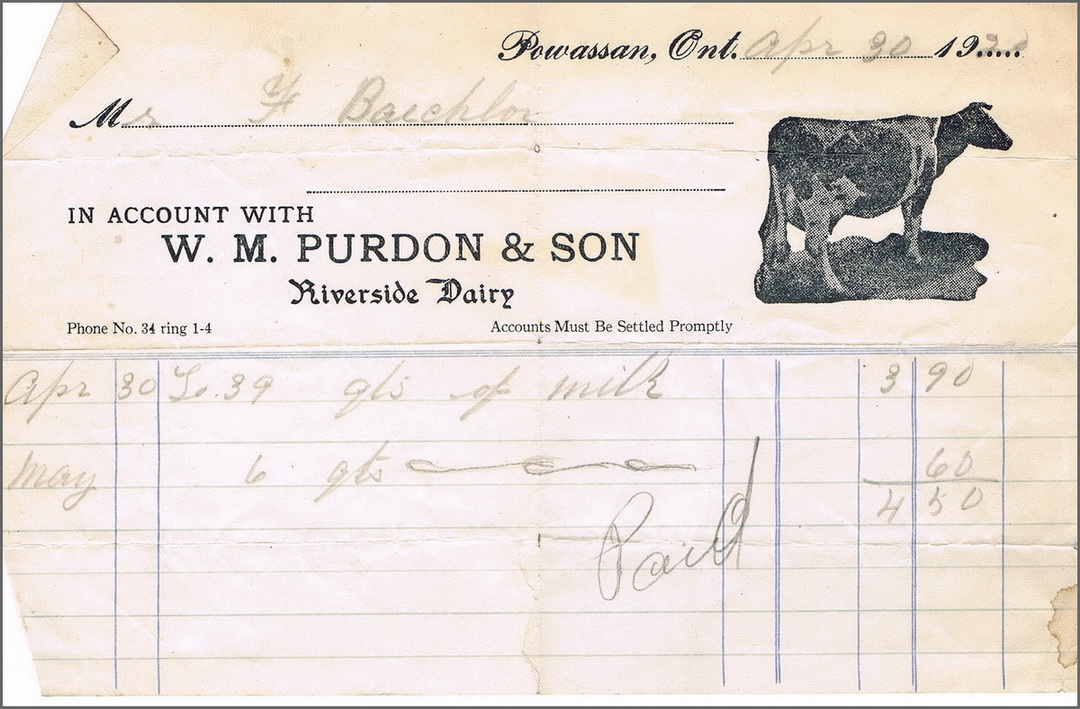 Powassan, Ont. Apr 30 19
Mr F Baechlor
IN ACCOUNT WITH
W. M. PURDON & SON
Riverside Dairy
Phone No. 34 ring 1-4 Accounts Must Be Settled Promptly
Apr 30 To 39 qts of milk 3 90
May 6 qts 60
4 50
Paid